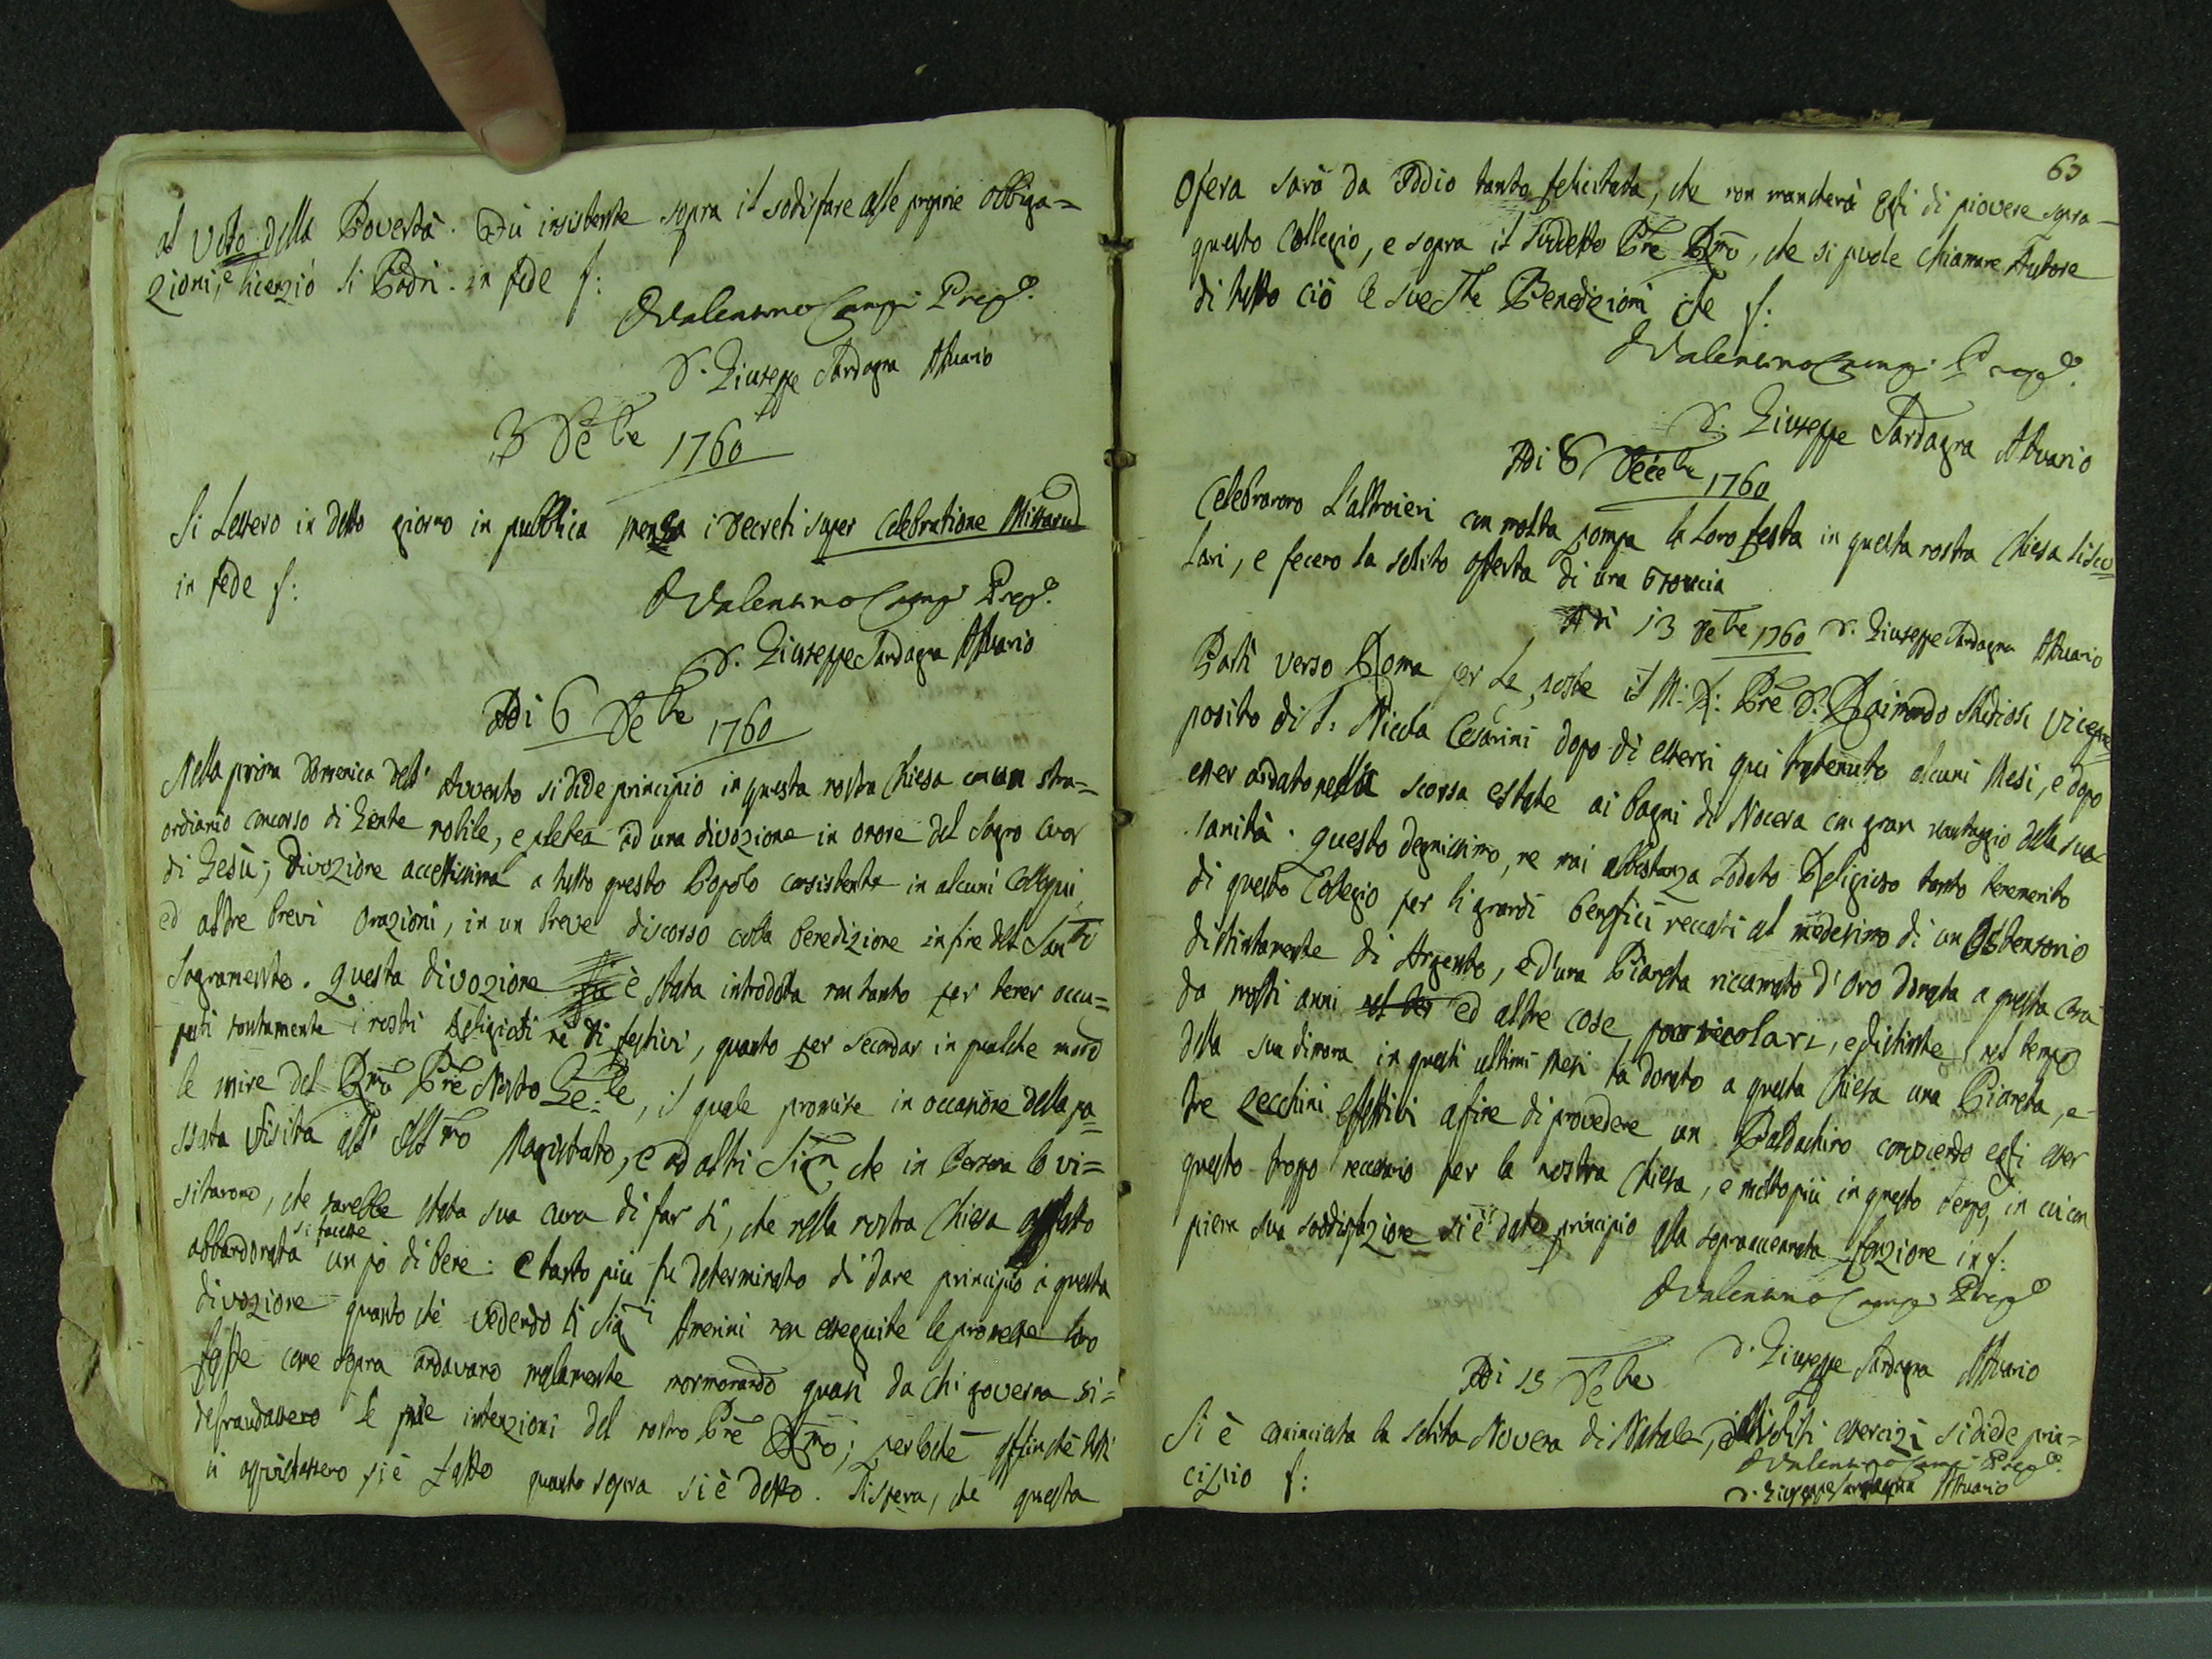 al Voto della Povertà. Più insistente sopra il sodisfare alle proprie obbiga=
zioni, e licenziò li Padri. in fede f:
D Valentino Prep.to
D. Giuseppe Sardagna Attuario
3 Xbre 1760
Si Lessero in detto giorno in pubblica mensa i Decreti super Celebratione Missarum
in fede f:
D Valentino Prep.to
D. Giuseppe Sardagna Attuario
Adi 6 Xbre 1760
Nella prima Domenica dell' Avvento si diede principio in questa nostra Chiesa con un stra=
ordianrio concorso di Gente nobile, e plebea ad una divozione in onore del Sagro Cuor
di Gesù; Divozione accettissima a tutto questo Popolo consistente in alcuni Colloqui,
ed altre brevi Orazioni, in un breve discorso colla benedizione infine del San.mo
Sagramento. Questa divozione è stata introdotta non tanto per tener occu=
pati santamente i nostri Religiosi ne dì festivi, quanto per secondar in qualche modo
le mire del Rmo Pre Nostro Ge:le, il quale promise in occasione della pa=
ssata Visita all' Illmo Magistrato, e ad altri Sign. che in Persona lo vi=
sitarono, che sarebbe stata sua cura di far sì, che nella nostra Chiesa affatto
abbandonata si facesse un pò di bene: e tanto più fu determinato di dare principio a questa
divozione quanto che vedendo li Sigri Amerini non esseguite le promesse loro
fatte come sopra andavano malamente mormorando quasi da chi governa si=
defraudassero le pie intenzioni del nostro Pre Rmo; perloche affinchè tutti
si si è fatto quanto sopra si è detto. Si spera, che questa
63
Opera sarà da Iddio tanto felicitata, che non mancherà Egli di piovere sopra=
questo Collegio, e sopra il suddetto Pre Rmo, che si puole chiamare Autore
di tutto ciò le sue Ste Benedizioni che f:
D Valentino Prep.to
D. Giuseppe Sardagna Attuario
Adi 6 Xcebre 1760
Celebrarono L'altroieri con molta pompa la loro festa in questa nostra Chiesa
lari, e fecero la solito offerta di una
Adi 13 Xbre 1760 D. Giuseppe Sardagna Attuario
Partì verso Roma per Le poste il M: R: Pre D. Raimondo Vicepre=
posito di S: Nicola Cesarini dopo di essersi qui tratenuto alcuni Mesi, e dopo
esser andato nella scorsa estate ai bagni di Nocera con gran vantaggio della sua
sanità. Questo degnissimo, ne mai abbastanza Lodato Religioso tanto benemerito
di questo Collegio per li grandi benefici reccati al medesimo di un Ostensorio
distintamente di Argento, e d'una Pianeta riccamata d'Oro donata a questa Casa
da molti anni ed altre cose particolari, e distinte nel tempo
della sua dimora in questi ultimi Mesi ha donato a questa Chiesa una Pianeta, e
tre zecchini effettivi affine di provedere un Baldachino conoscendo egli esser
questo troppo necessario per la nostra Chiesa, e molto più in questo tempo, in cui con
piena sua soddisfazione si è dato principio alla sopraccenata fonzione in f:
D Valentino Prep.to
D. Giuseppe Sardagna Attuario
Adi 15 Xbre
Si è cominciata la solita Novena di Natale, soliti esercizi si diede prin=
cipio f:
D Valentino Prep.to
D. Giuseppe Sardagna Attuario